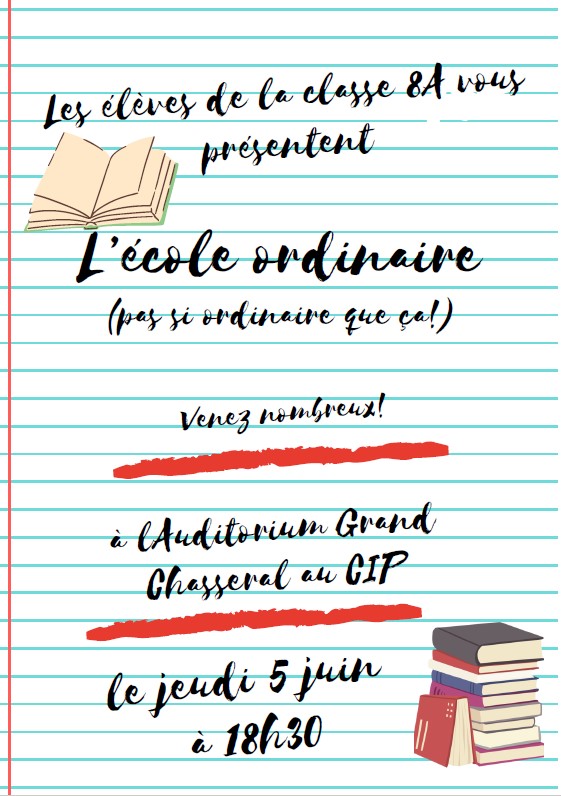 Les élèves de la classe 8A vous
présentent
L'école ordinaire
(pas si ordinaire que ça!)
Venez nombreux!
à lAuditorium Grand
Chasseral au CIP
le jeudi 5 juin
à 18h30